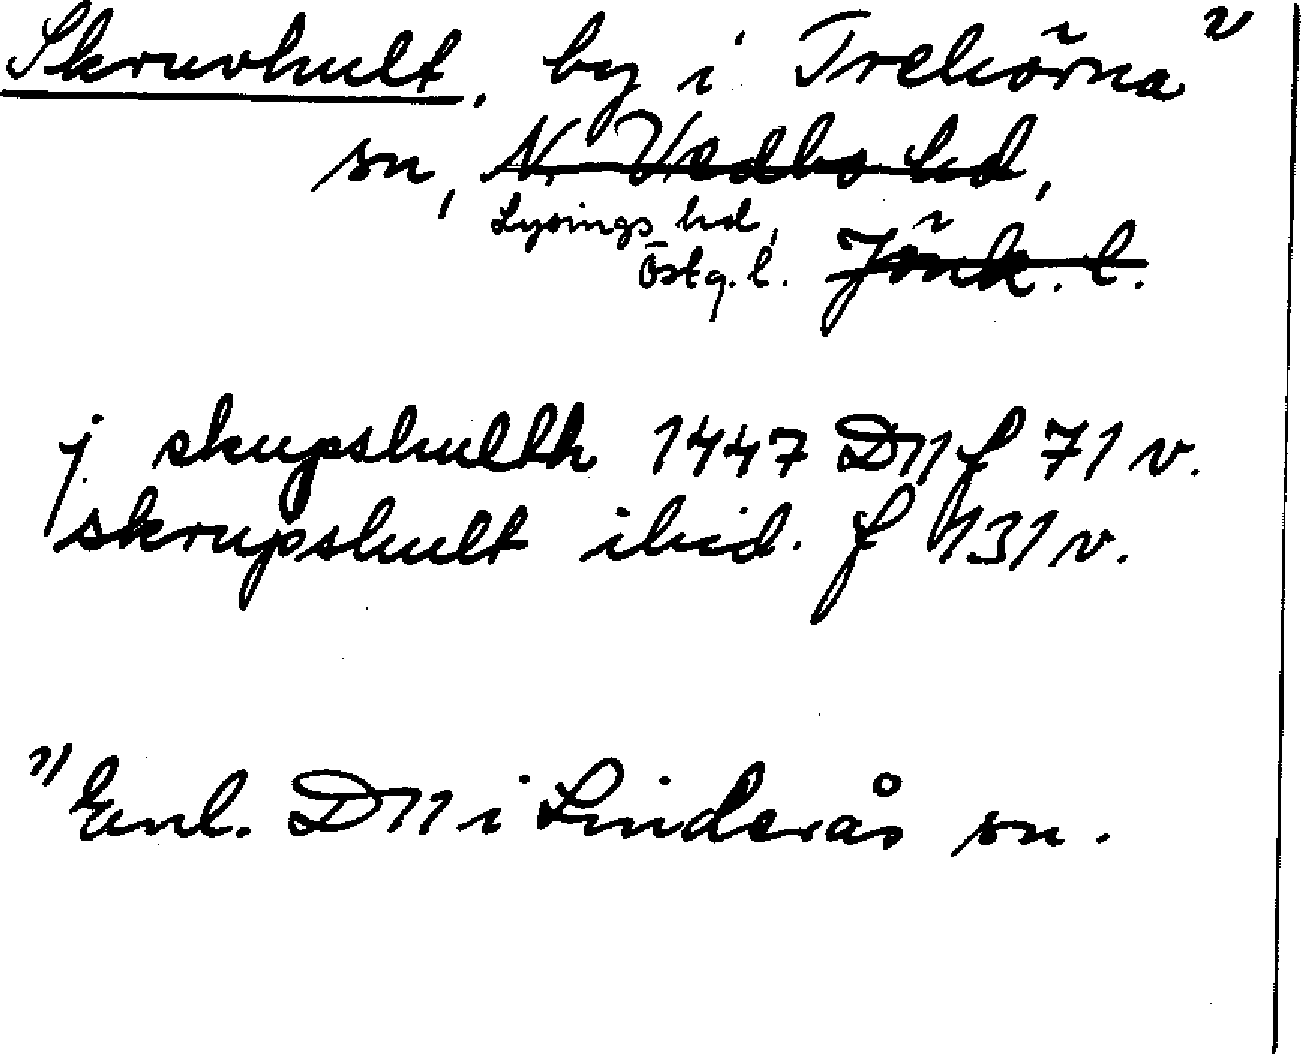 Skruvhult, by i Trehörna 1)
sn, N. Vedbo hd,
Lysings hd,
Östg. l. Jönk. l.
j skupshulth 1447 D11 f 71 v.
skrupshult ibid. f 131 v.
1) Enl. D11 i Linderås sn.